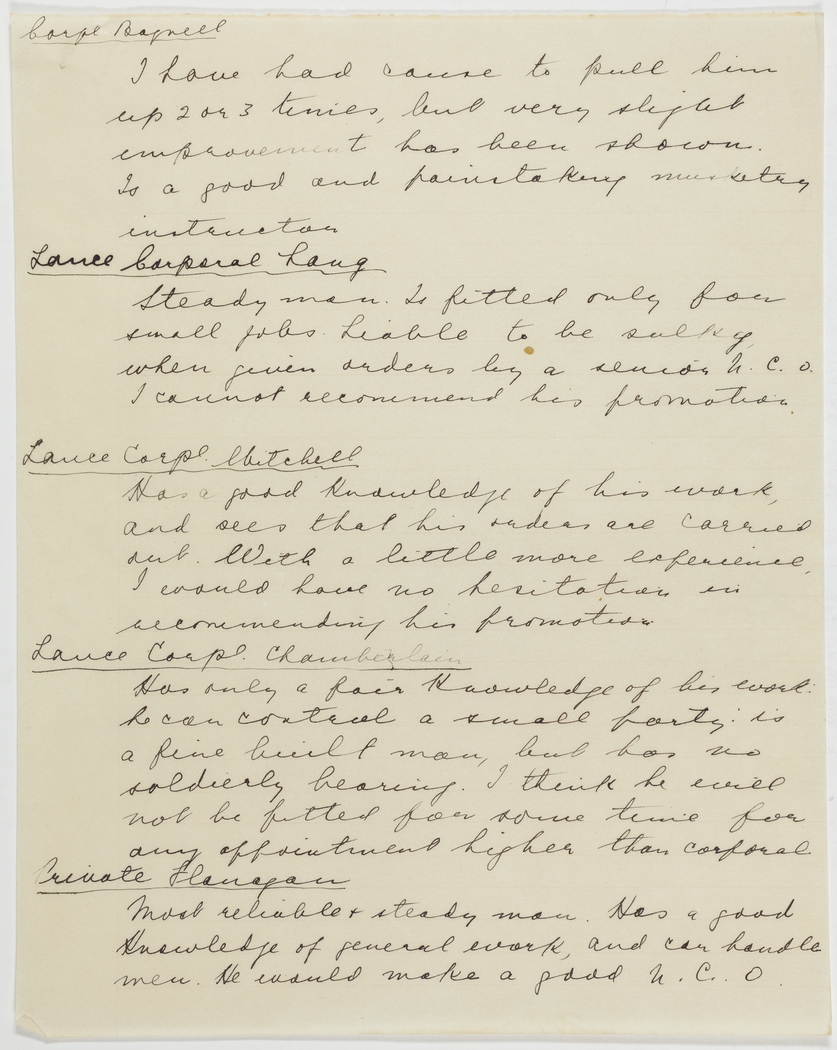 Corpl Bagnell
I have had cause to pull him
up 2 or 3 times, but very slight
improvement has been shown.
Is a good and painstaking musketry
instructor
Lance Corporal Laug
Steady man. Is fitted only for
small jobs. Liable to be sulky,
when given orders by a senior N. C. O.
I cannot recommend his promotion.
Lance Corpl. Mitchell
Has a good knowledge of his work,
and sees that his orders are carried
out. With a little more experience,
I would have no hesitation in
recommending his promotion
Lance Corpl. Chamberlain
Has only a fair knowledge of his work:
he can control a small party: is
a fine built man, but has no
soldierly bearing. I think he will
not be fitted for some time for
any appointment higher than corporal
Private Flanagan
Most reliable & steady man. Has a good
knowledge of general work, and can handle
men. He would make a good N. C. O.